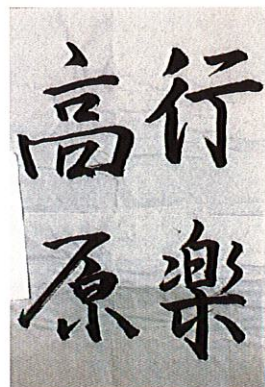 行楽
高原